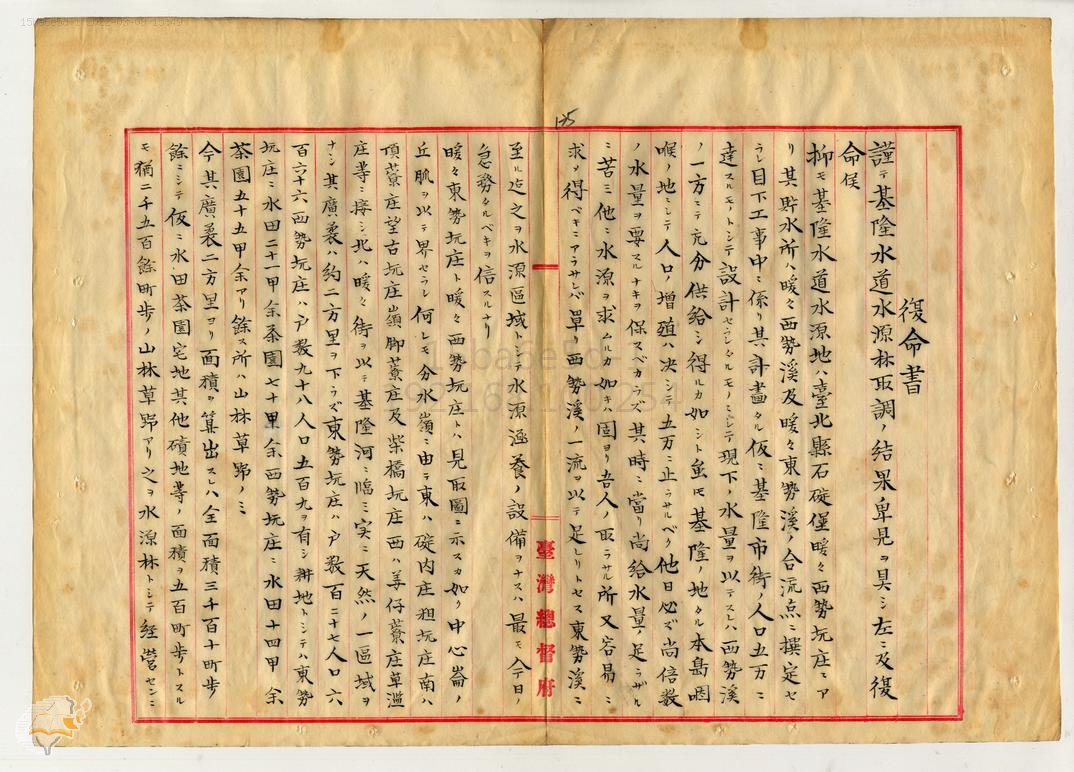 復命書
謹テ基隆水道水源林取調ノ結果卑見ヲ具シ左ニ及復
命候
抑モ基隆水道水源地ハ臺北縣石碇堡暖々西勢坑庄ニア
リ其貯水所ハ暖々西勢溪及暖々東勢溪ノ合流点ニ撰定セ
ラレ目下工事中ニ係リ其計畫タル仮ニ基隆市街ノ人口五万ニ
達スルモノトシテ設計セラレタルモノニシテ現下ノ水量ヲ以テスレハ西勢溪
ノ一方ニテ充分供給シ得ルカ如シト虽モ基隆ノ地タル本島咽
喉ノ地ニシテ人口ノ増殖ハ決シテ五万ニ止ラサルベク他日必ズ尚倍数
ノ水量ヲ要スルナキヲ保スベカラズ其時ニ當リ尚給水量ノ足ラザル
ニ苦ミ他ニ水源ヲ求ムルカ如キハ固ヨリ吾人ノ取ラサル所又容易ニ
求メ得ベキニアラサレバ單リ西勢溪ノ一流ヲ以テ足レリトセス東勢溪ニ
臺灣總督府
至ル迄之ヲ水源區域トシテ水源涵養ノ設備ヲナスハ最モ今日ノ
急務タルベキヲ信スルナリ
暖々東勢坑庄ト暖々西勢坑庄トハ見取圖ニ示スカ如ク中心崙ノ
丘脈ヲ以テ界セラレ何レモ分水嶺ニ由テ東ハ碇内庄粗坑庄南ハ
頂藔庄望古坑庄嶺脚藔庄及柴橋坑庄西ハ羌仔藔庄草濫
庄等ニ接シ北ハ暖々街ヲ以テ基隆河ニ臨ミ実ニ天然ノ一區域ヲ
ナシ其廣袤ハ約二方里ヲ下ラズ東勢坑庄ハ戸数百二十七人口六
百六十六西勢坑庄ハ戸数九十八人口五百九ヲ有シ耕地トシテハ東勢
坑庄ニ水田二十一甲余茶園七十甲余西勢坑庄ニ水田十四甲余
茶園五十五甲余アリ餘ス所ハ山林草野ノミ
今其廣袤二方里ヨリ面積ヲ算出スレハ全面積三千百十町歩
餘ニシテ仮ニ水田茶園宅地其他磧地等ノ面積ヲ五百町歩トスル
モ猶二千五百餘町歩ノ山林草野アリ之ヲ水源林トシテ経營センニ